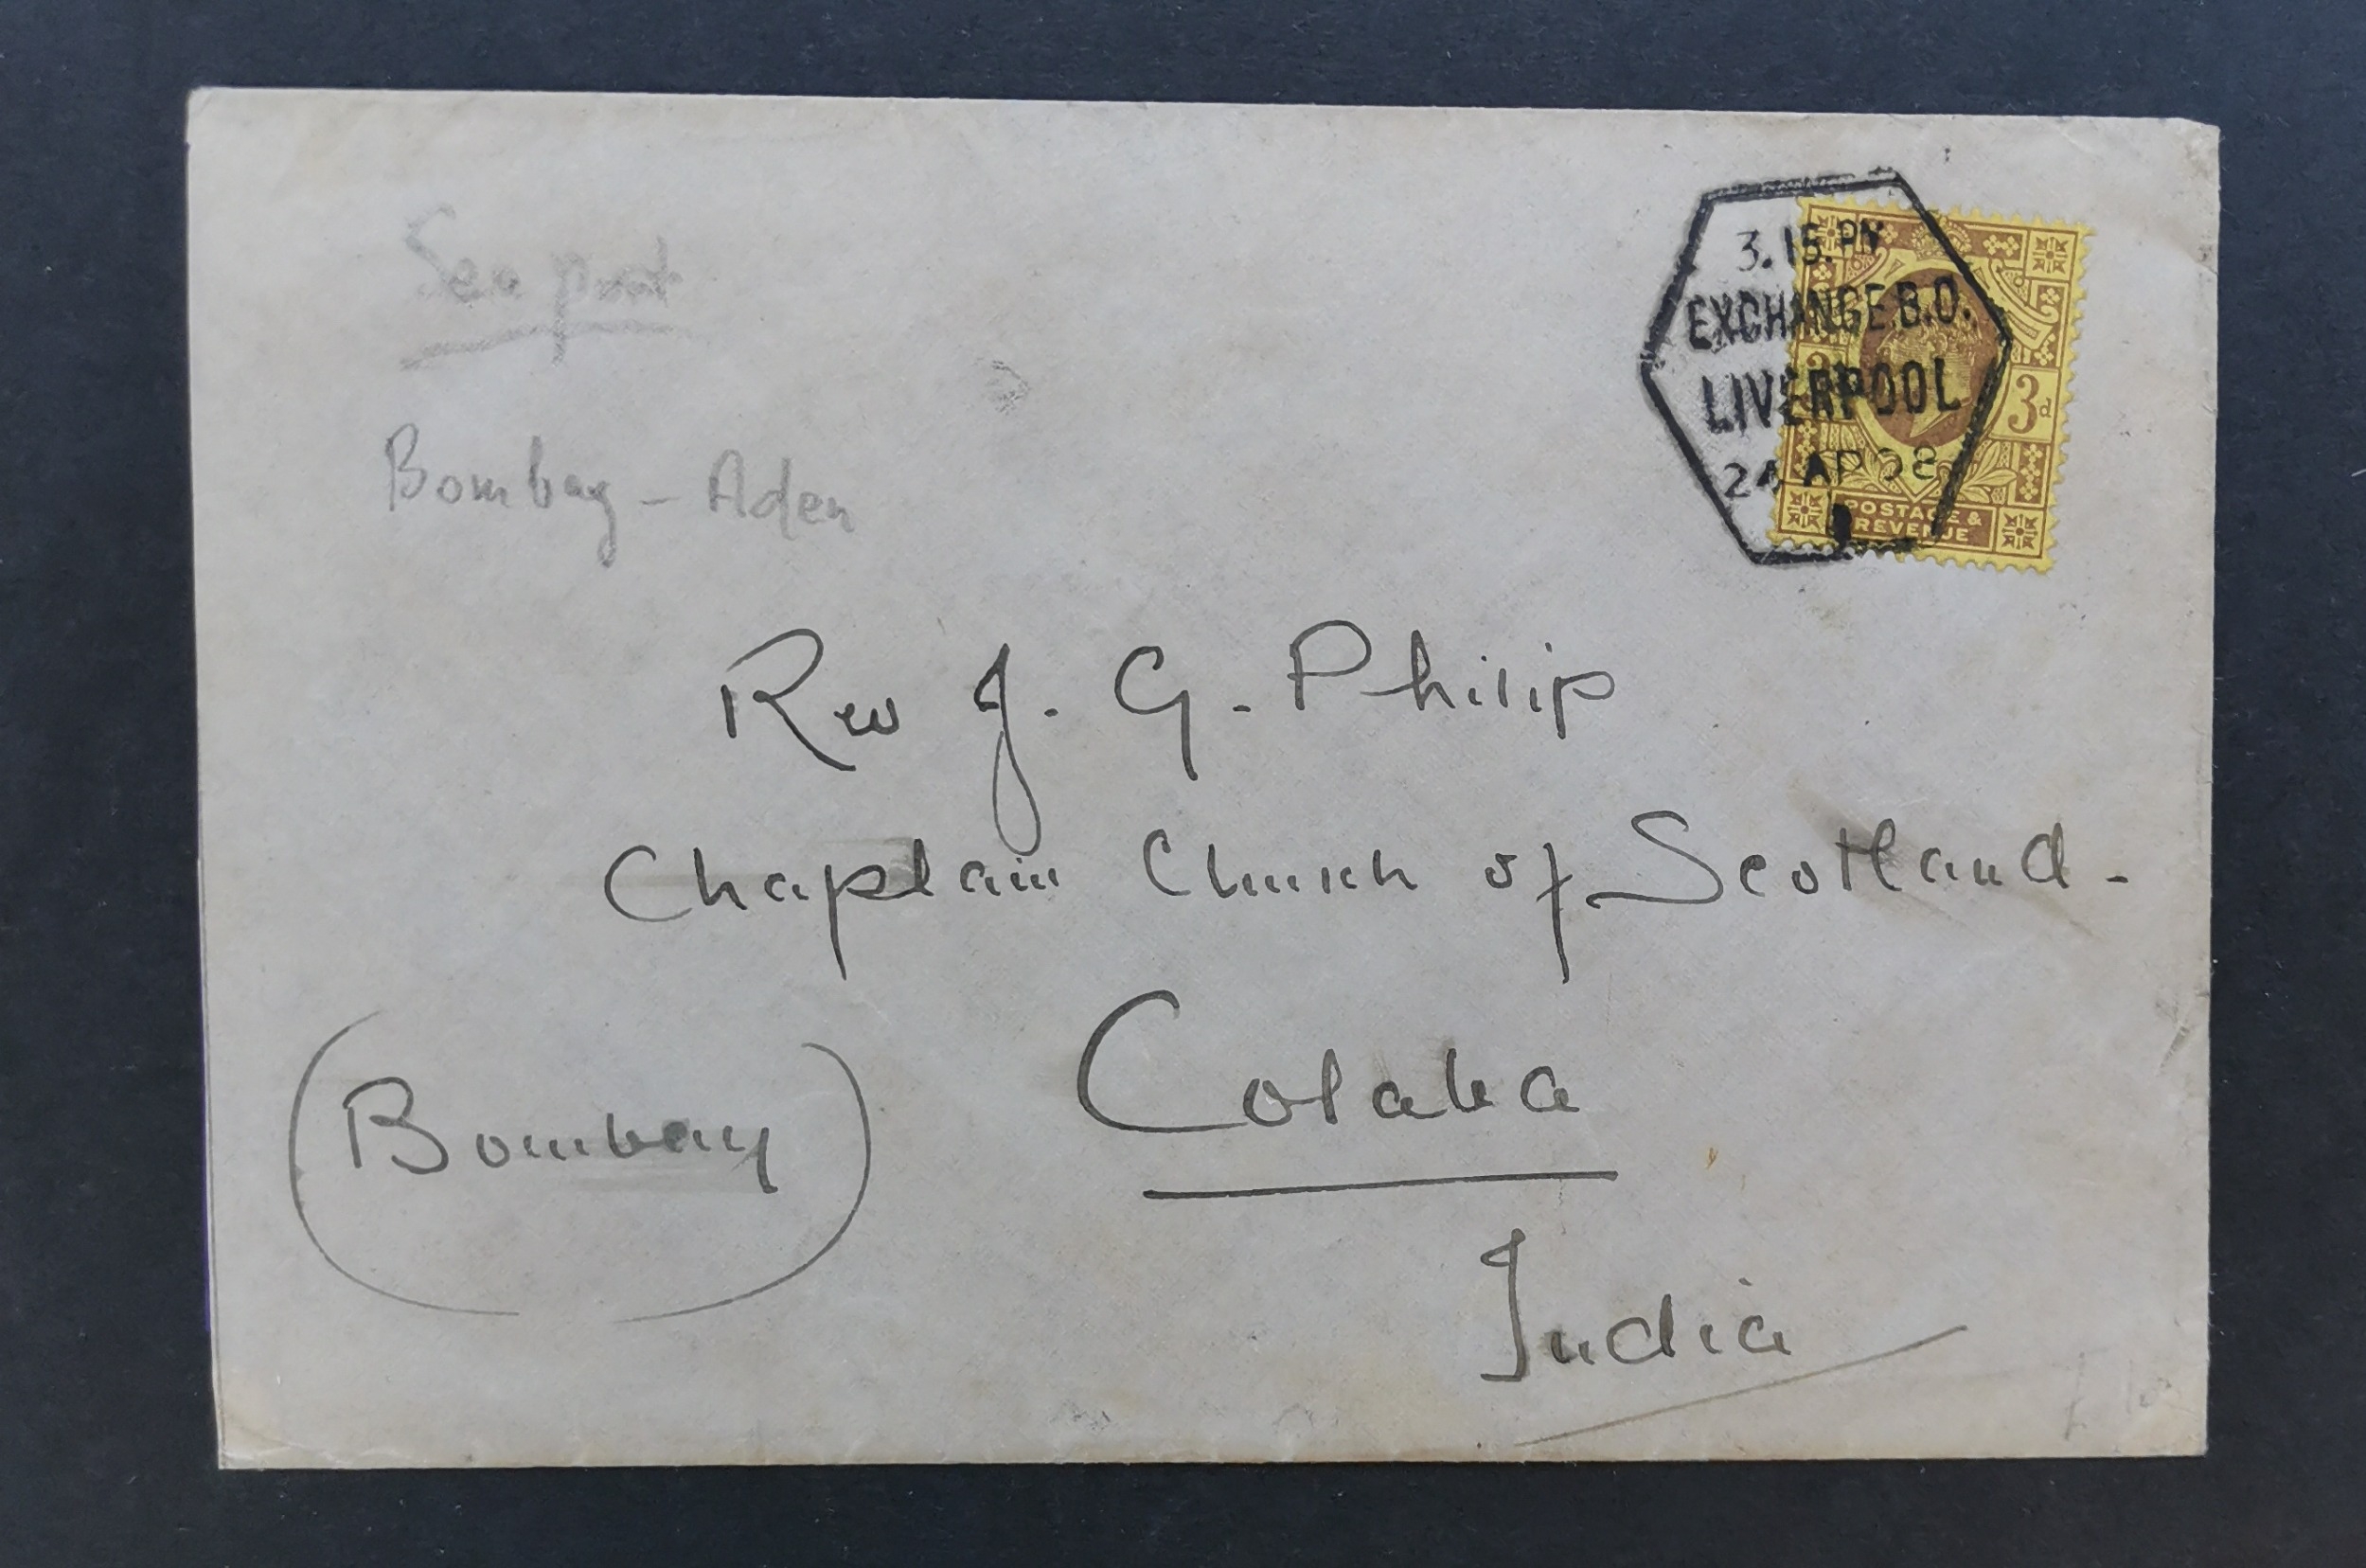 Sea post
Bombay - Aden
3.15.PM
EXCHANGE.B.O.
LIVERPOOL
24 AP 08
3d
POSTAGE &
REVENUE
Rev J. G. Philip
Chaplain Church of Scotland -
Colaba
(Bombay)
India